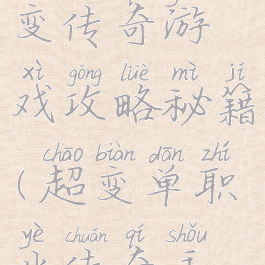 变传奇游
xì gōng lüè mì jí
戏攻略秘籍
chāo biàn dān zhí
(超变单职
yè chuán qí shǒu